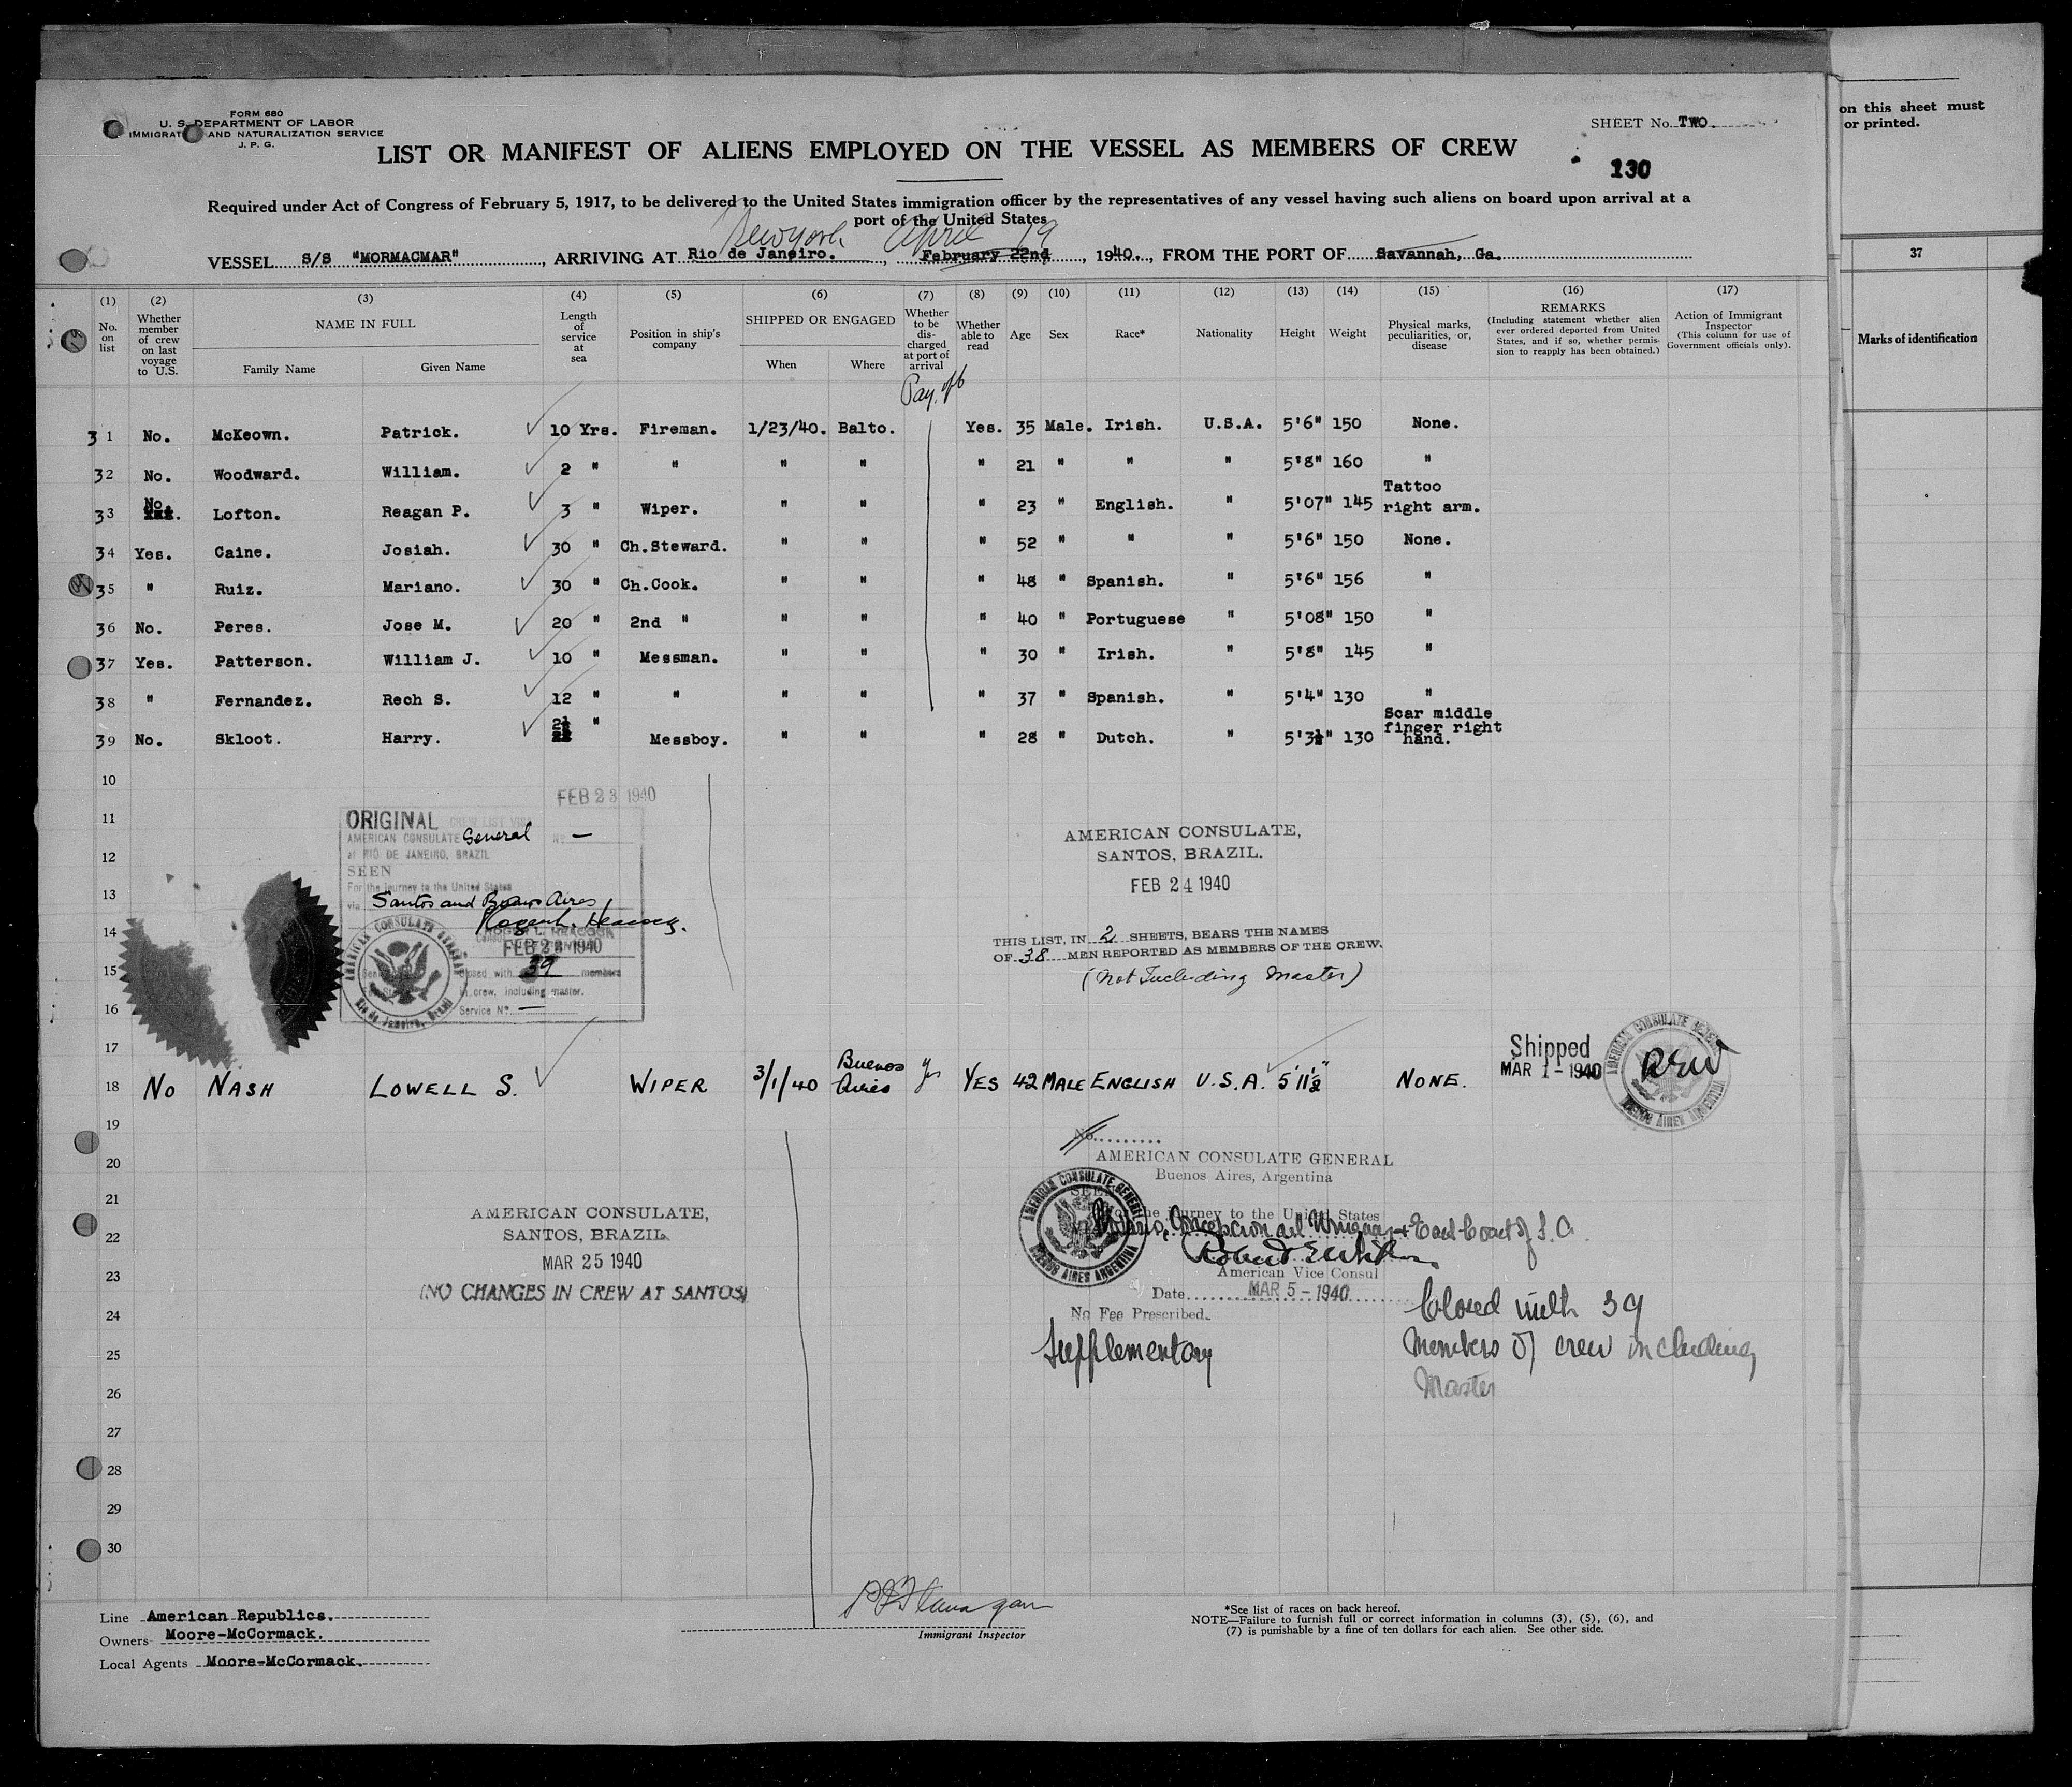 on this sheet must
or printed.
37
Marks of identification
FORM 680
U. S. DEPARTMENT OF LABOR
IMMIGRAT AND NATURALIZATION SERVICE
J. P. G.
SHEET No. TWO.
LIST OR MANIFEST OF ALIENS EMPLOYED ON THE VESSEL AS MEMBERS OF CREW
130
Required under Act of Congress of February 5, 1917, to be delivered to the United States immigration officer by the representatives of any vessel having such aliens on board upon arrival at a
port of the United States
New York April 19
VESSEL S/S "MORMACMAR", ARRIVING AT Rio de Janeiro., February 22nd, 1940., FROM THE PORT OF Savannah, Ga.
(1) (2) (3) (4) (5) (6) (7) (8) (9) (10) (11) (12) (13) (14) (15) (16) (17)
No. on list
Whether member of crew on last voyage to U.S.
NAME IN FULL
Family Name Given Name
Length of service at sea
Position in ship's company
SHIPPED OR ENGAGED
When Where
Whether to be discharged at port of arrival
Whether able to read
Age Sex Race* Nationality Height Weight
Physical marks, peculiarities, or, disease
REMARKS
(Including statement whether alien ever ordered deported from United States, and if so, whether permission to reapply has been obtained.)
Action of Immigrant Inspector
(This column for use of Government officials only).
Pay. off
31 No. McKeown. Patrick. 10 Yrs. Fireman. 1/23/40. Balto. Yes. 35 Male. Irish. U.S.A. 5'6" 150 None.
32 No. Woodward. William. 2 " " " " " 21 " " " 5'8" 160 "
33 No. Lofton. Reagan P. 3 " Wiper. " " " 23 " English. " 5'07" 145 Tattoo right arm.
34 Yes. Caine. Josiah. 30 " Ch.Steward. " " " 52 " " " 5'6" 150 None.
35 " Ruiz. Mariano. 30 " Ch.Cook. " " " 48 " Spanish. " 5'6" 156 "
36 No. Peres. Jose M. 20 " 2nd " " " " 40 " Portuguese " 5'08" 150 "
37 Yes. Patterson. William J. 10 " Messman. " " " 30 " Irish. " 5'8" 145 "
38 " Fernandez. Rech S. 12 " " " " " 37 " Spanish. " 5'4" 130 "
39 No. Skloot. Harry. 2½ " Messboy. " " " 28 " Dutch. " 5'3½" 130 Scar middle finger right hand.
10
11
12
13
14
15
16
17
FEB 23 1940
ORIGINAL CREW LIST VISA
AMERICAN CONSULATE General No. —
at RIO DE JANEIRO, BRAZIL
SEEN
For the journey to the United States
via Santos and Buenos Aires
FEB 23 1940
closed with 39 members
in crew, including master.
Service No. —
AMERICAN CONSULATE GENERAL
Rio de Janeiro, Brazil
AMERICAN CONSULATE,
SANTOS, BRAZIL.
FEB 24 1940
THIS LIST, IN 2 SHEETS, BEARS THE NAMES
OF 38 MEN REPORTED AS MEMBERS OF THE CREW.
(Not Including Master)
18 No NASH LOWELL S. WIPER 3/1/40 Buenos Aires Yes YES 42 MALE ENGLISH U.S.A. 5'11½" NONE.
Shipped
MAR 1 - 1940
REW
AMERICAN CONSULATE GENERAL
BUENOS AIRES ARGENTINA
19
20
21
22
23
24
25
26
27
28
29
30
AMERICAN CONSULATE,
SANTOS, BRAZIL.
MAR 25 1940
(NO CHANGES IN CREW AT SANTOS)
No.
AMERICAN CONSULATE GENERAL
Buenos Aires, Argentina
SEEN
For the journey to the United States
Rosario, Concepcion del Uruguay + East Coast of S. A.
American Vice Consul
Date MAR 5 - 1940
No Fee Prescribed.
Supplementary
AMERICAN CONSULATE GENERAL
BUENOS AIRES ARGENTINA
Closed with 39
Members of crew including
Master
Line American Republics.
Owners Moore-McCormack.
Local Agents Moore-McCormack.
P J Flanagan
Immigrant Inspector
*See list of races on back hereof.
NOTE—Failure to furnish full or correct information in columns (3), (5), (6), and
(7) is punishable by a fine of ten dollars for each alien. See other side.